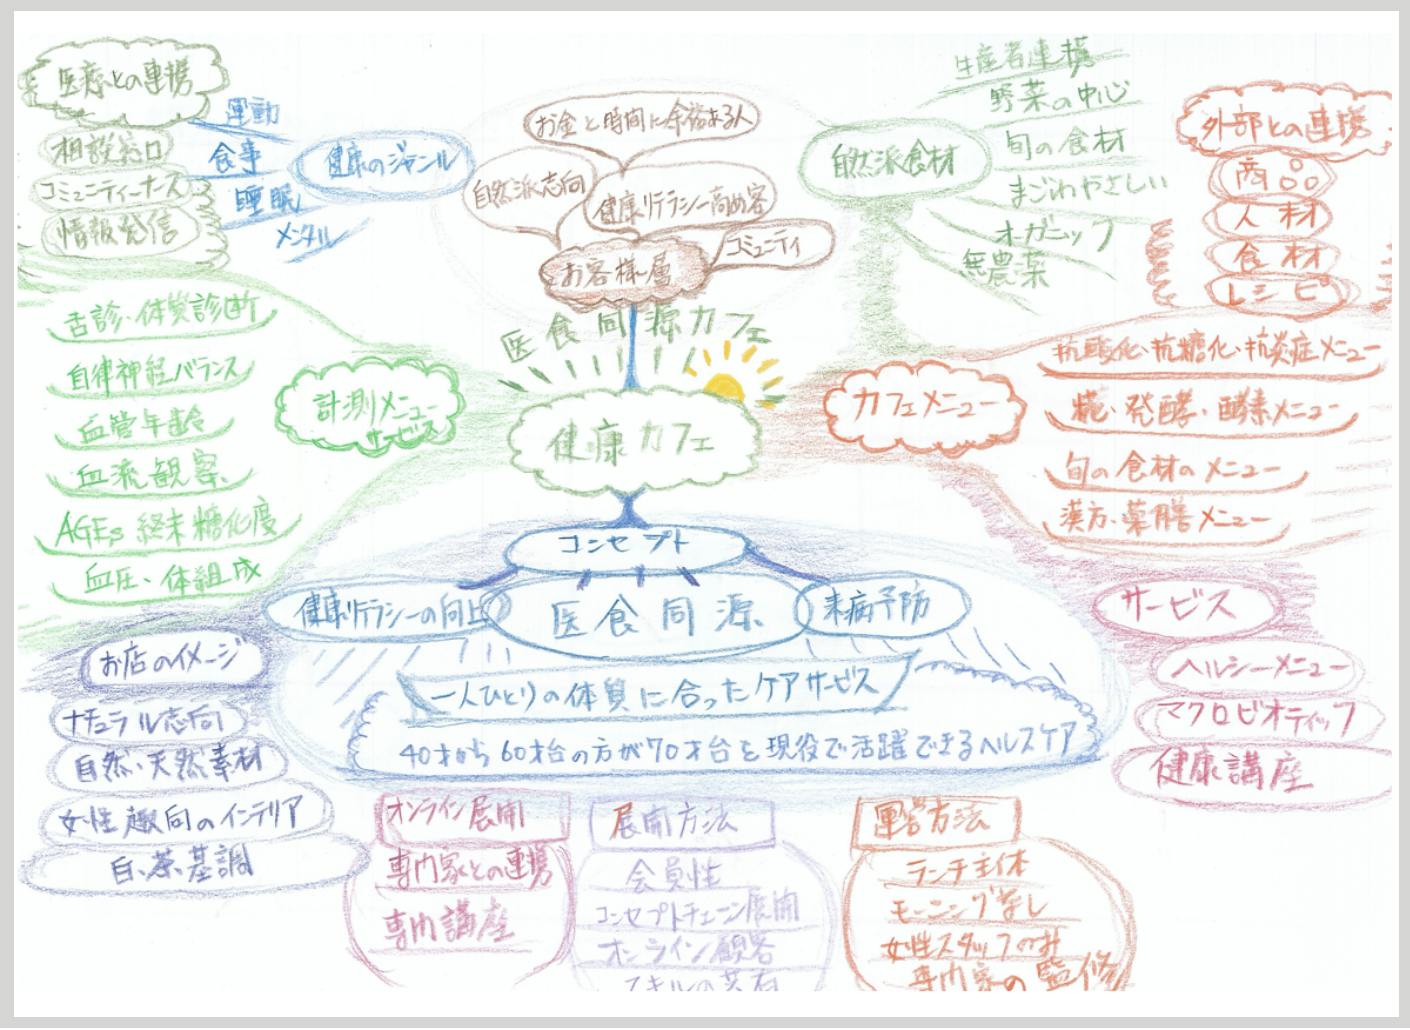 医療との連携
相談窓口
コミュニティーナース
情報発信
運動
食事
睡眠
メンタル
健康のジャンル
お金と時間に余裕ある人
自然派志向
健康リテラシー高め客
コミュニティ
お客様層
自然派食材
生産者連携
野菜の中心
旬の食材
まごわやさしい
オーガニック
無農薬
外部との連携
商品
人材
食材
レシピ
医食同源カフェ
健康カフェ
計測メニュー
サービス
舌診・体質診断
自律神経バランス
血管年齢
血流観察
AGEs 終末糖化度
血圧、体組成
カフェメニュー
抗酸化・抗糖化・抗炎症メニュー
糀・発酵・酵素メニュー
旬の食材のメニュー
漢方・薬膳メニュー
コンセプト
健康リテラシーの向上
医食同源
未病予防
一人ひとりの体質に合ったケアサービス
40才から60才台の方が70才台を現役で活躍できるヘルスケア
お店のイメージ
ナチュラル志向
自然・天然素材
女性趣向のインテリア
白、茶、基調
サービス
ヘルシーメニュー
マクロビオティック
健康講座
オンライン展開
専門家との連携
専門講座
展開方法
会員性
コンセプトチェーン展開
オンライン顧客
スキルの共有
運営方法
ランチ主体
モーニングなし
女性スタッフのみ
専門家の監修